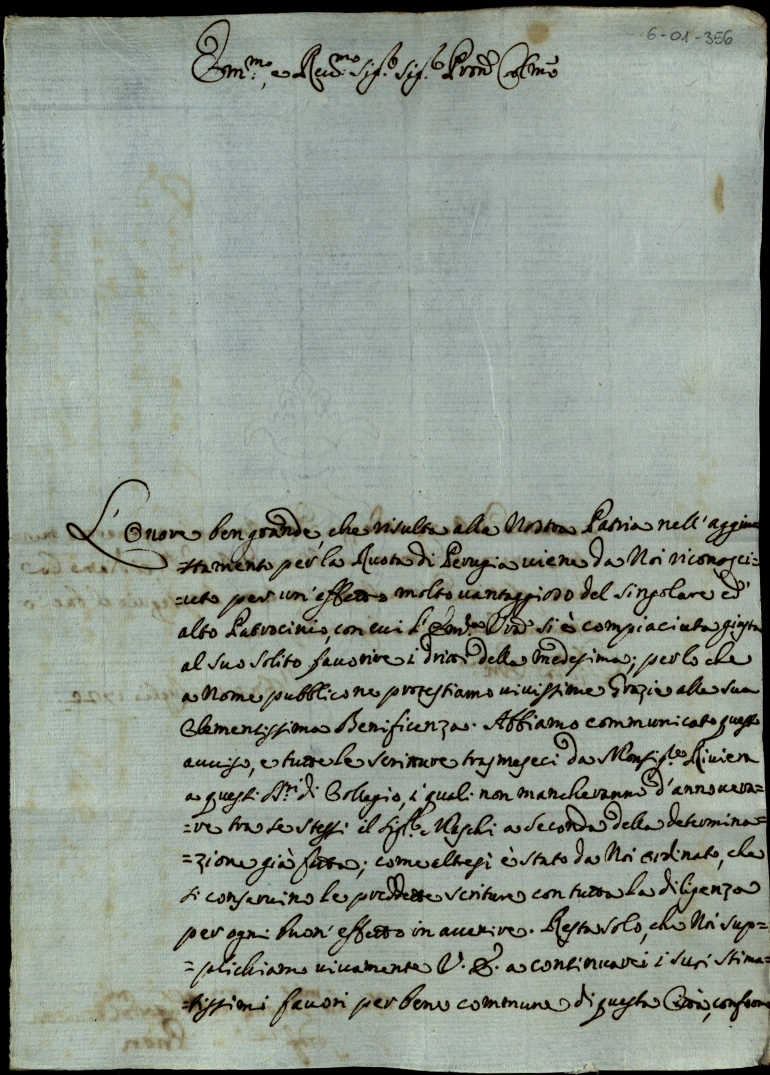 6-01-356
Em.mo, e Rev.mo Sig.r Sig.r Pron Colmo
L'Onore ben grande, che risulta alla Nostra Patria nell'aggiu
=stamento per la Ruota di Perugia viene da Noi riconosci=
=uto per un'effetto molto vantaggioso del singolare ed
alto Patrocinio, con cui l'Em.a Vra si è compiaciuta giusta
al suo solito favorire i dritti della medesima; per lo che
a Nome pubblico ne protestiamo vivissime Grazie alla sua
Clementissima Beneficenza. Abbiamo communicato questo
avviso, e tutte le scritture trasmesseci da Monsig.re Riviera
a questi SS.ri di Collegio, i quali non mancheranno d'annovera=
=re tra se stessi il Sig.r Maschi a seconda della determina=
=zione già fatta; come altresi è stato da Noi ordinato, che
si conservino le preddette scritture con tutta la diligenza
per ogni buon' effetto in avvenire. Resta solo, che Noi sup=
=plichiamo vivamente V. E. a continuarci i suoi stima=
=tissimi favori per bene commune di questa Città, conforme